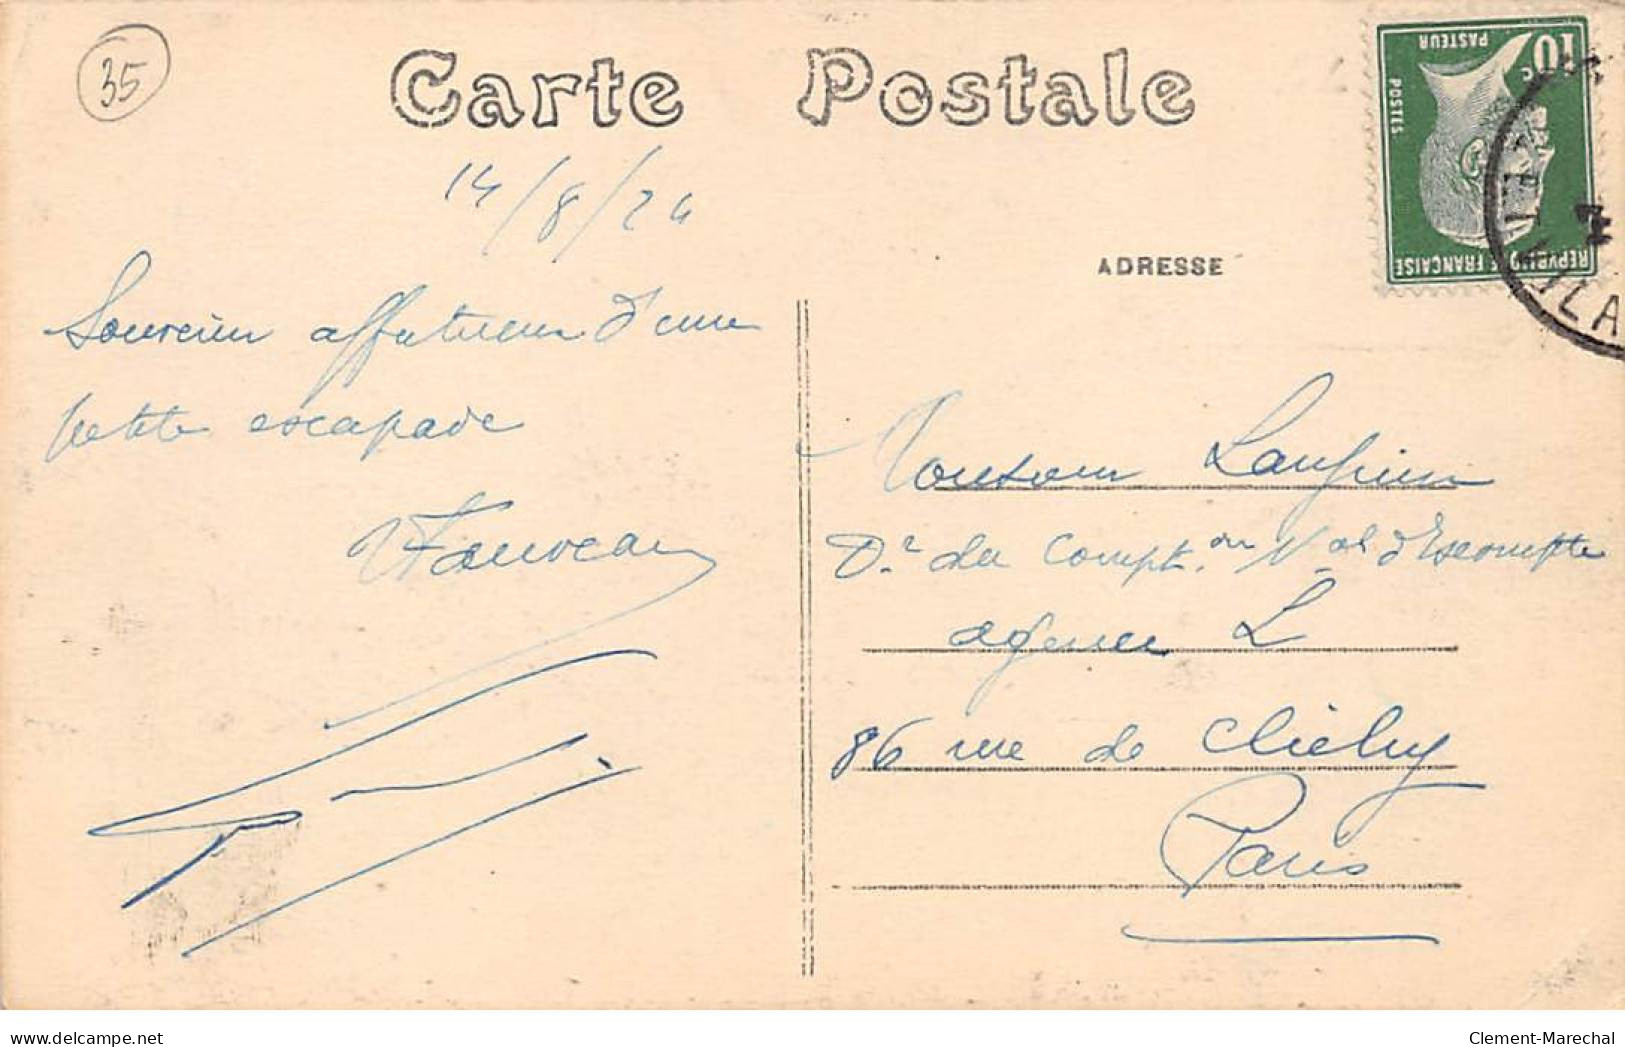 35
Carte Postale
10 c
PASTEUR
POSTES
REPUBLIQUE FRANÇAISE
14/8/24
ADRESSE
Souvenir affectueux d'une
petite escapade
Fauveau
Monsieur
Dr du Compt. on Nal d'Escompte
agence L
86 rue de Clichy
Paris
delcampe.net
Clement-Marechal